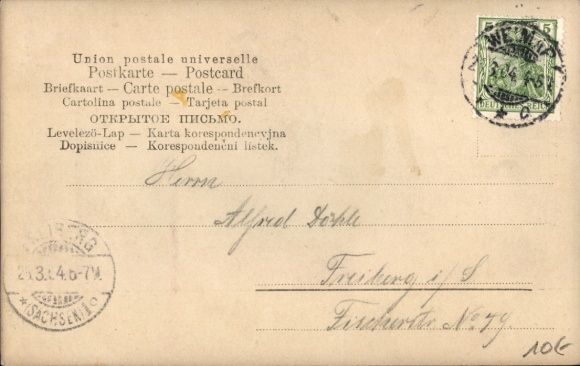 Union postale universelle
Postkarte — Postcard
Briefkaart — Carte postale — Brefkort
Cartolina postale — Tarjeta postal
ОТКРЫТОЕ ПИСЬМО.
Levelező-Lap — Karta korespondencyjna
Dopisnice — Korespondenční lístek.
5 5
WEIMAR
DEUTSCHES REICH
* c
Herrn
Alfred Döhle
Freiberg i/S
Fischerstr. No 79.
FREIBERG
6-7V.
*(SACHSEN)1c
10€